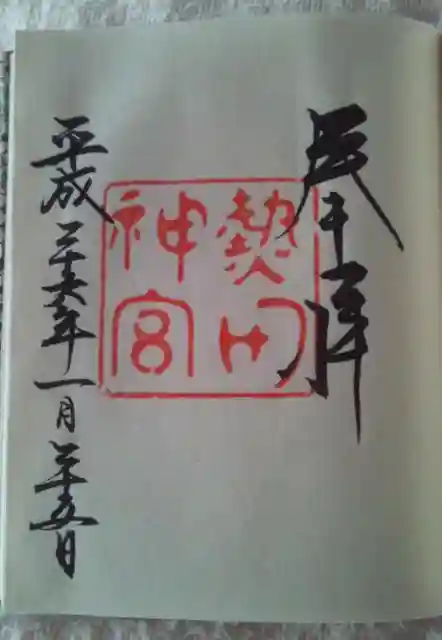 奉拝
熱田
神宮
平成二十六年一月二十五日